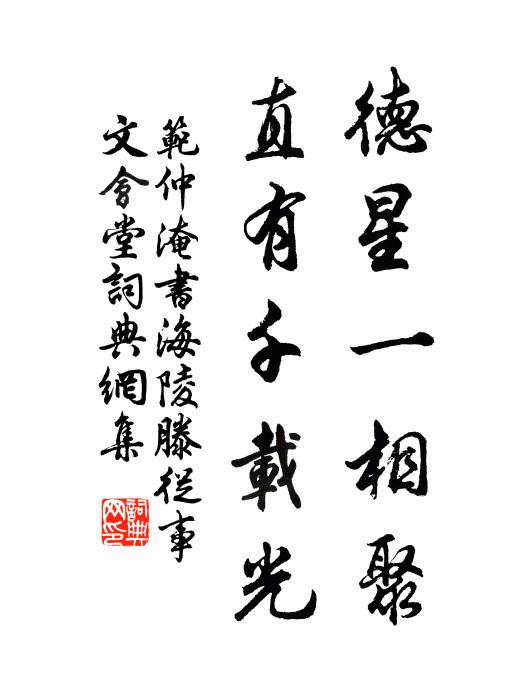 德星一相聚
直有千載光
範仲淹書海陵滕從事
文會堂詞典網集
詞典网印